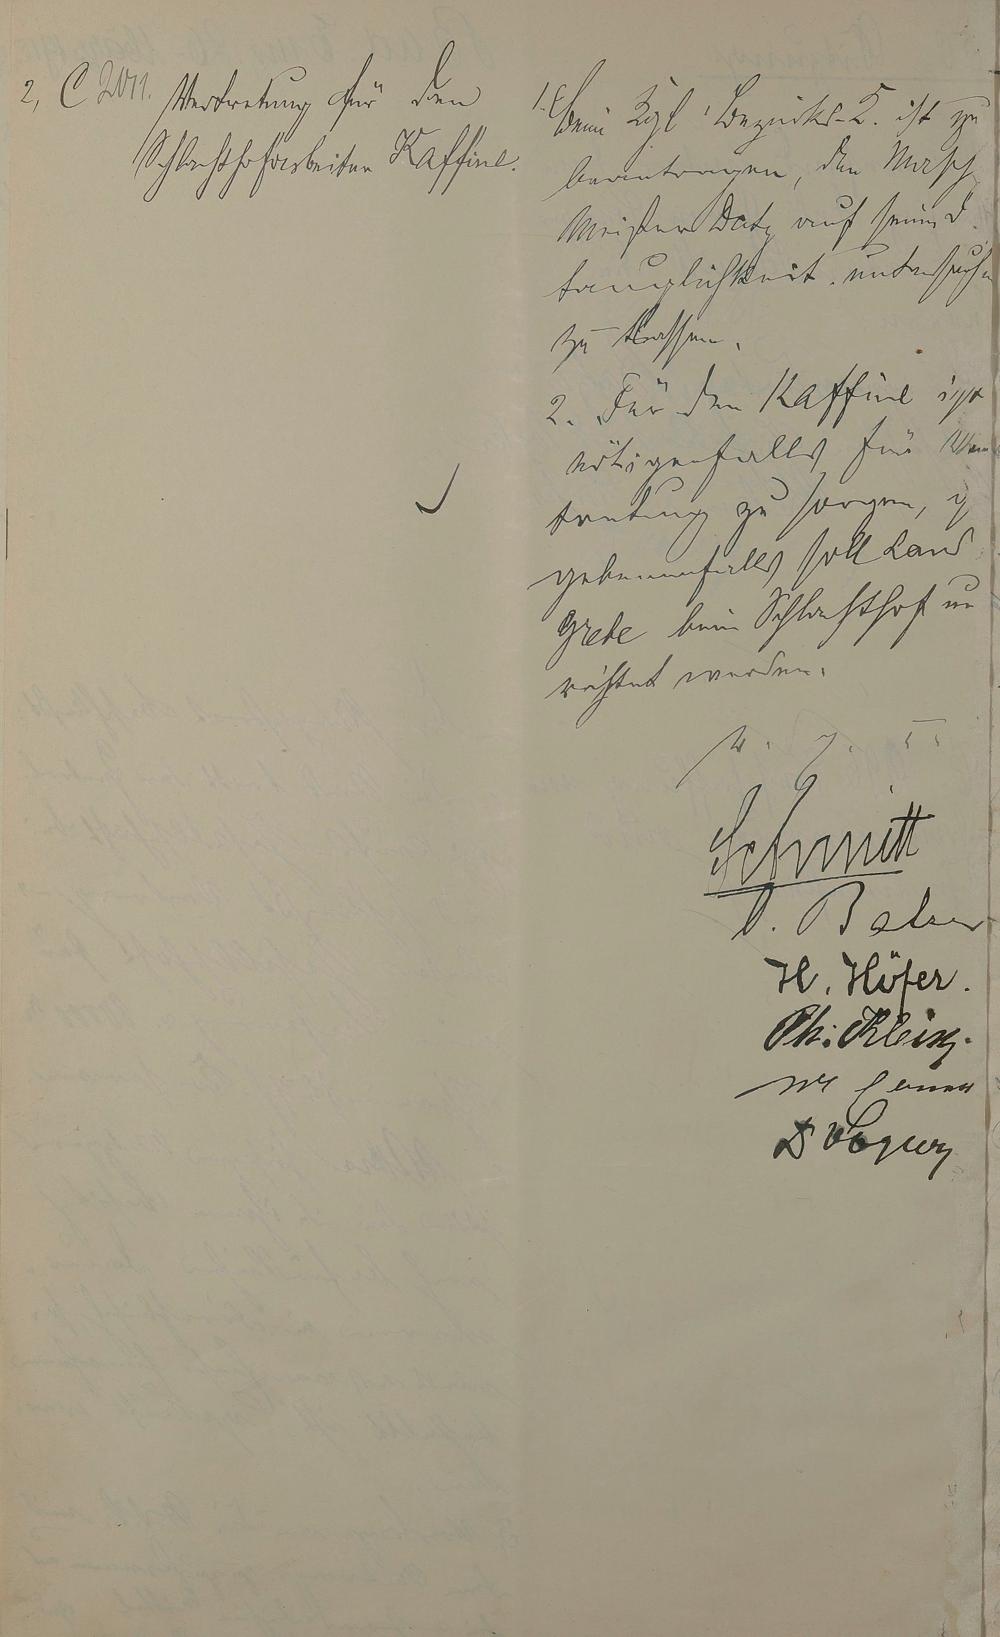 2, C 2011. Vertretung für den
Schlachthofarbeiter Kaffine.
1. Beim Kgl. Bezirks-K. ist zu
beantragen, den Masch
Meister Datz auf sein D
tauglichkeit untersuchen
zu lassen.
2. Für den Kaffine ist
nötigenfalls für Ver
tretung zu sorgen,
gebenenfalls soll Land
Grebe beim Schlachthof un
richtet werden.
v. g. u.
Schmitt
Balzer
H. Höfer.
Ph. Klein.